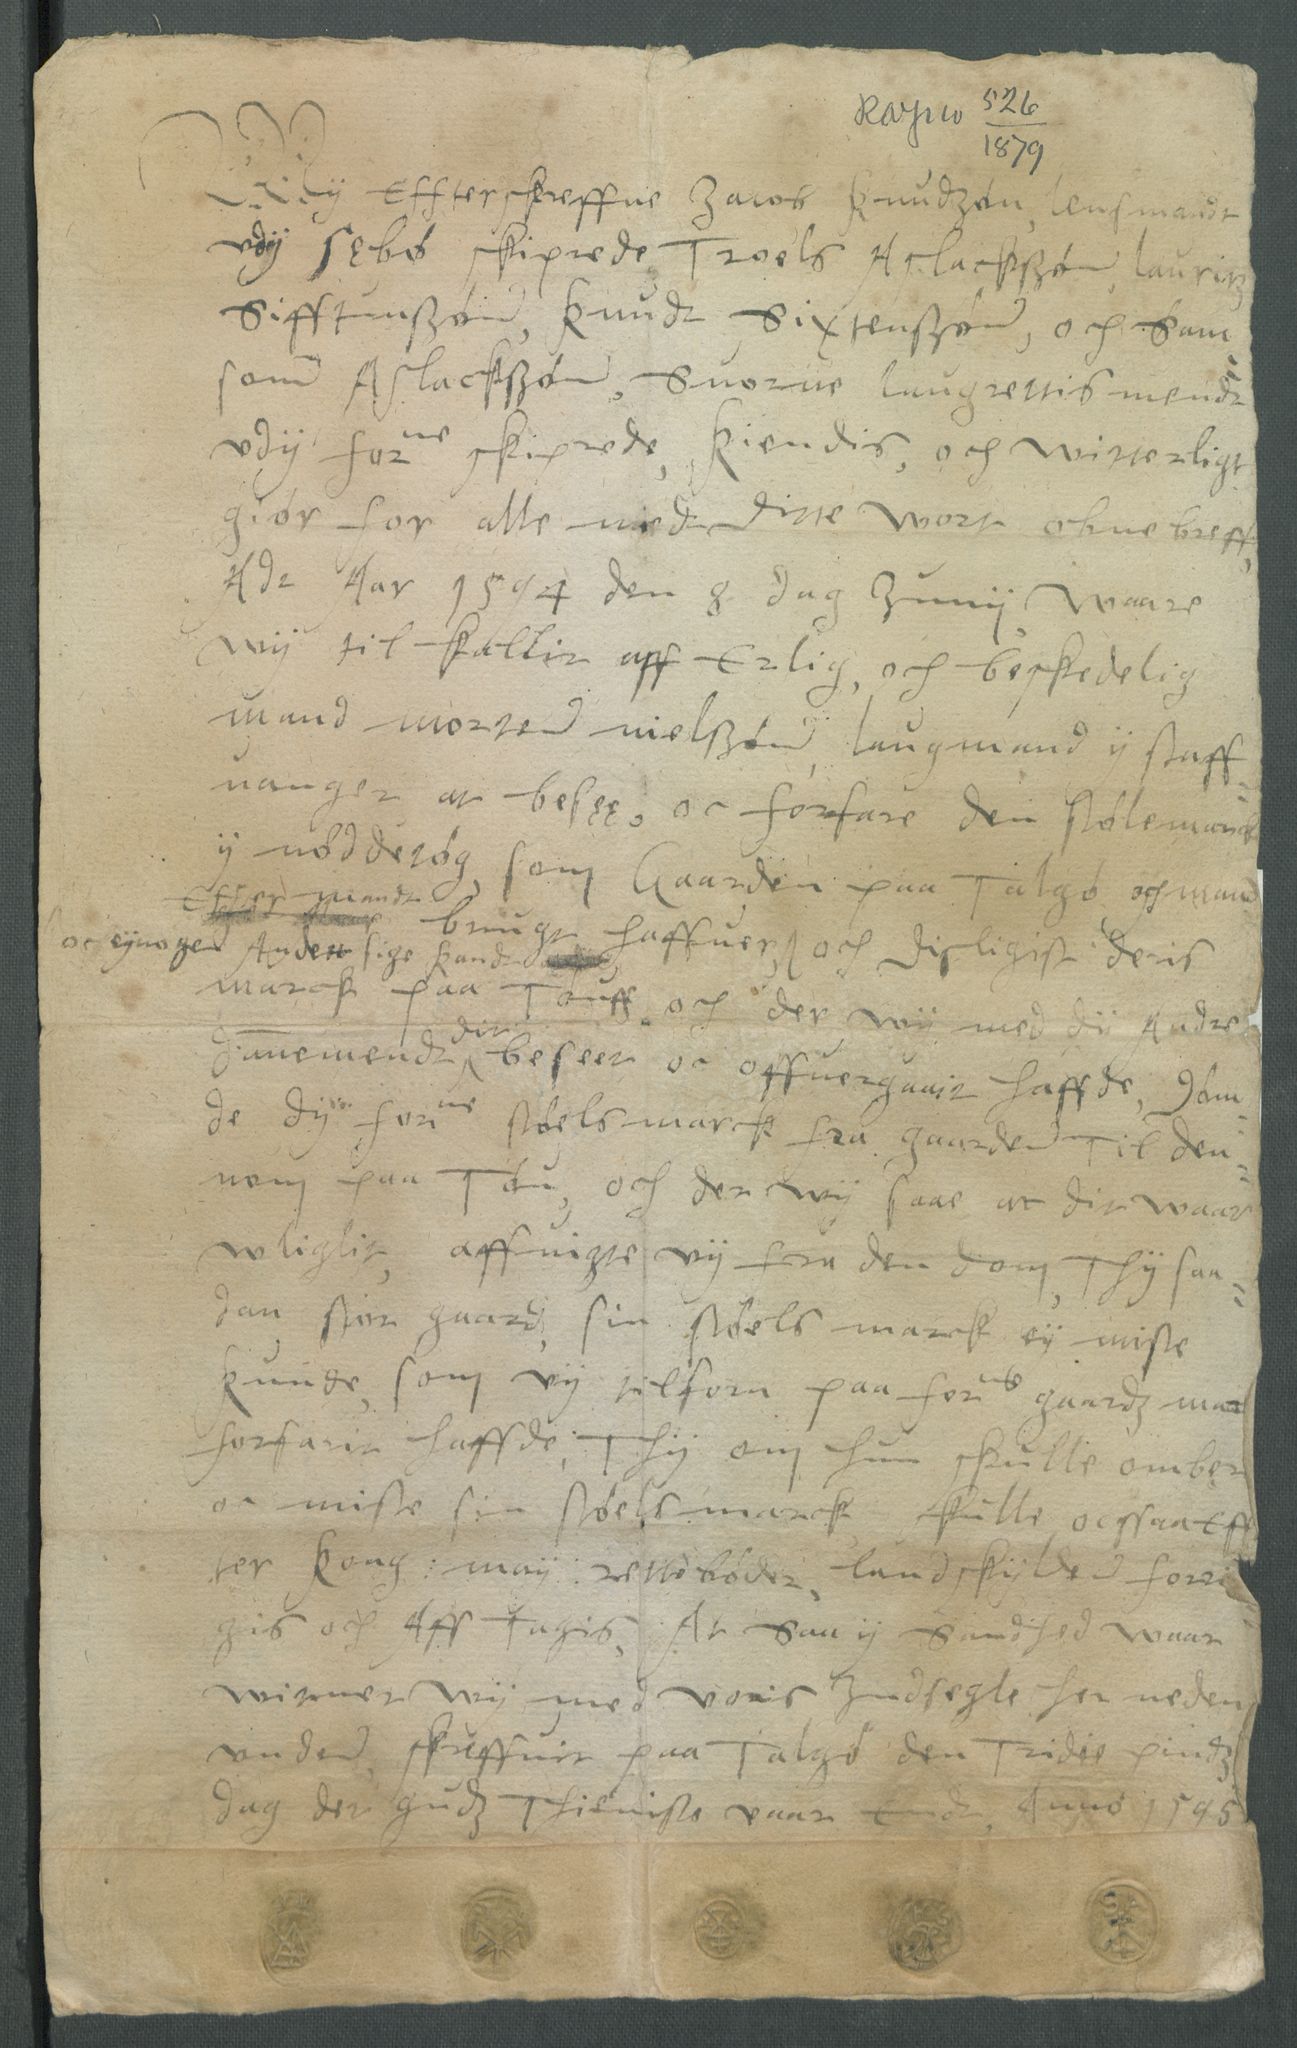 526
1879
Wij Effterschreffne Jacob Knudzøn, lensmandt
vdij Sębø skiprede Troels Aslackszøn, lauritz
Sifftunszøn, Knudt Sixtenszøn, och Sam
som Aslackszøn, Suorne laugrettis mendt
vdij forne skiprede, Kiendis, och witterligt
giør for alle med ditte wort obne breff,
Adt Aar 1594 den 8 dag Junij, waare
wij til kallit aff Erlig, och beskedelig
mand morten nielszøn, laugmand ij staff-
uanger at besęę, oc forfare den stølemarck
ij nødderøg, som Gaarden paa Talgø, och mand
Effter mandt brugt haffuer, och disligist deris
oc eij nogen Anden sige kandt
marck paa Touff, och der wij med dij Andre
dannemendt dit beseet oc offuergaait haffde, døm-
de dij forne støelsmarck fra gaarden Til den-
nem paa Tøu, och der wij saae at dit waar
wligligt, affuigte vij fra den dom, Thij saa-
dan stor gaard, sin støels marck eij miste
kunde, som vij tilforn paa forne gaardz mar
forfarit haffde, Thij om hun skulle omber
oc miste sin støelsmarck, skulle ocssaa Eff
ter Kong: maij: rettebøder, landskylden forri
gis och Aff Tagis, At saa ij Sandhed waar
witner wij med voris Indsegle her neden
vnder, skreffuit paa Talgø den Tridie pindz
dag der gudz Thieniste vaar Endt, Anno 1595